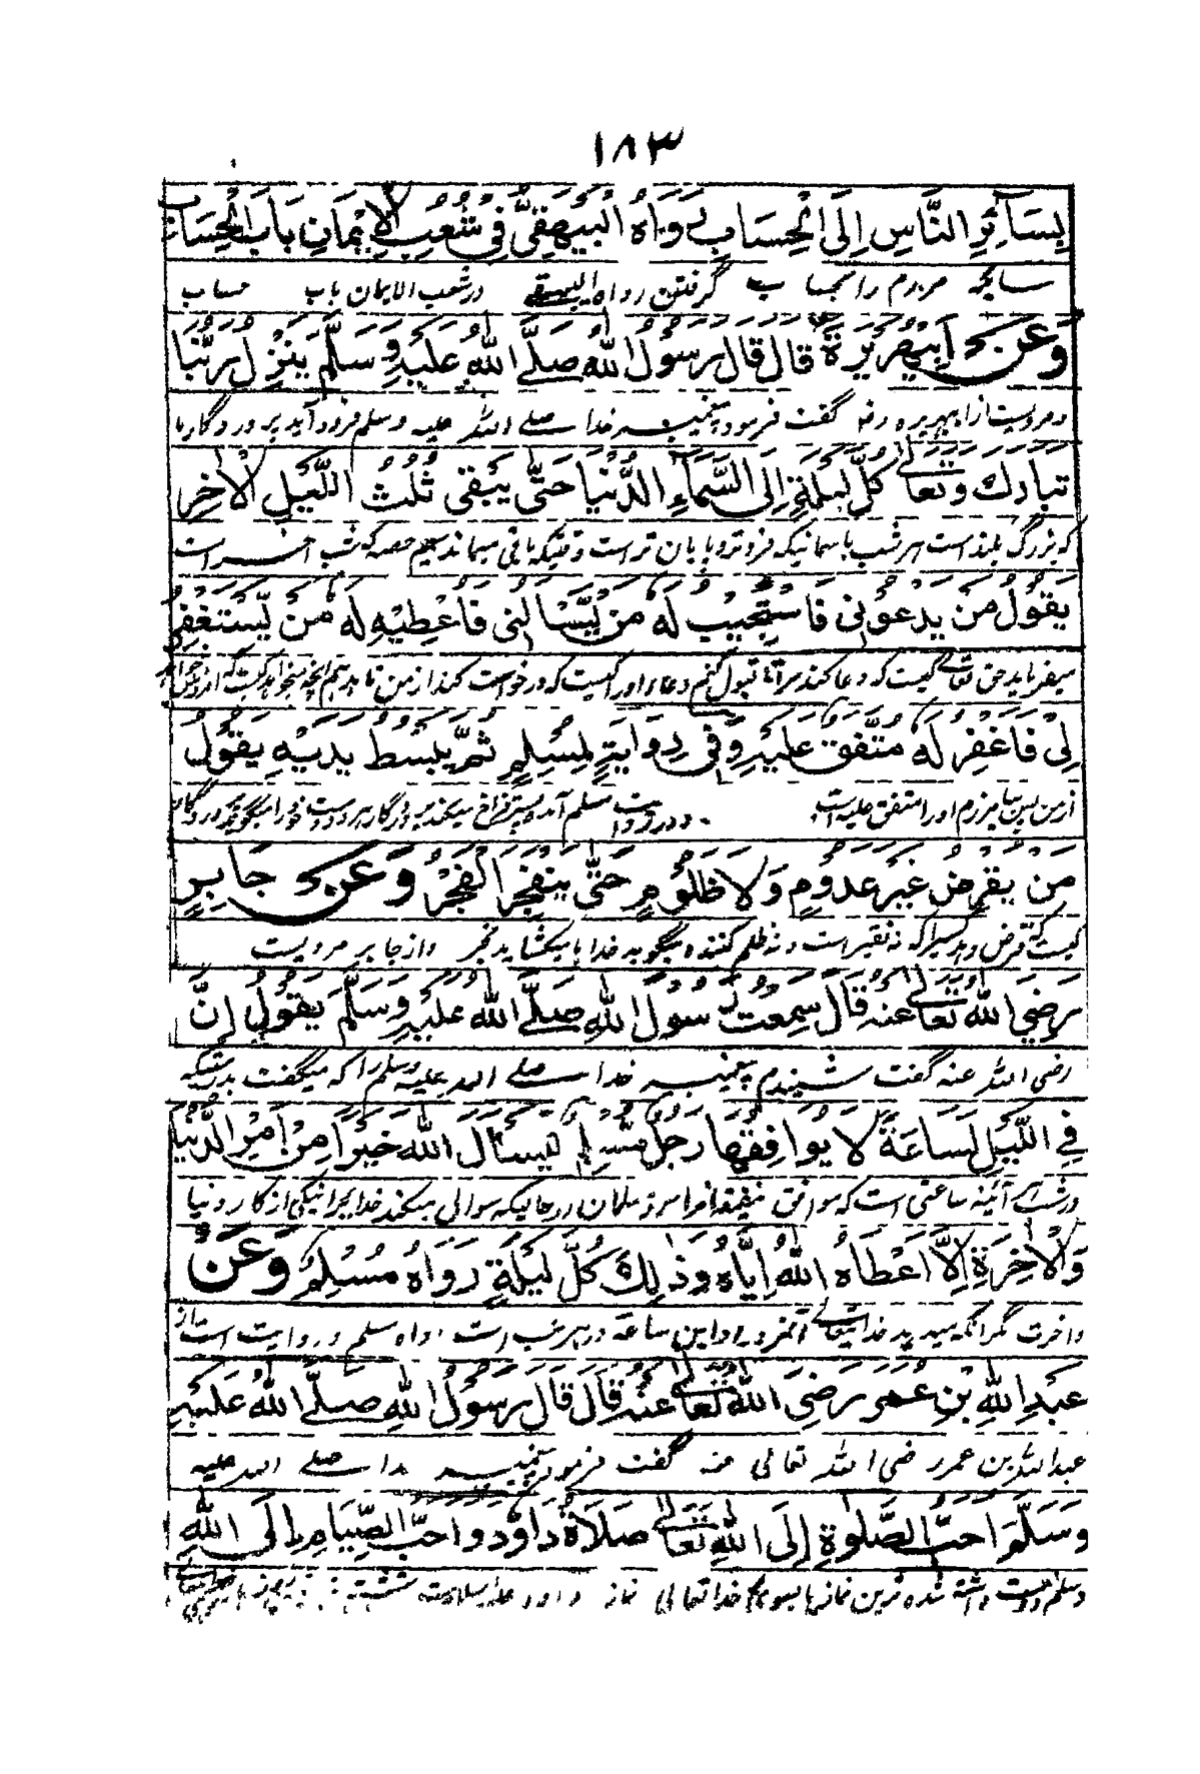 ١٨٣
بِسَآئِرِ النَّاسِ اِلَى الْحِسَابِ رَوَاهُ الْبَيْهَقِيُّ فِي شُعَبِ الْاِيْمَانِ بَابُ الْحِسَابِ
مردم را گرفتن رواه البیهقی در شعب الایمان باب حساب
وَعَنْ اَبِيْ هُرَيْرَةَ قَالَ قَالَ رَسُوْلُ اللهِ صَلَّى اللهُ عَلَيْهِ وَسَلَّمَ يَنْزِلُ رَبُّنَا
و مرویست از ابیهریره رض گفت فرمود پیغمبر خدا صلے اللہ علیہ وسلم فرود آید پروردگار ما
تَبَارَكَ وَتَعَالٰى كُلَّ لَيْلَةٍ اِلَى السَّمَآءِ الدُّنْيَا حَتّٰى يَبْقٰى ثُلُثُ اللَّيْلِ الْاٰخِرِ
که بزرگ بلند است هر شب باسمانیکه فروتر و پایان تر است وقتیکه باقی میماند سیم حصه که شب آخر است
يَقُوْلُ مَنْ يَدْعُوْنِيْ فَاَسْتَجِيْبُ لَهُ مَنْ يَّسْاَلُنِيْ فَاُعْطِيْهِ لَهُ مَنْ يَّسْتَغْفِرُ
میفرماید حق تعالے کیست که دعا کند مرا تا قبول کنم دعاء اورا کیست که درخواست کند از من تا بدهم آنچه میخواهد کیست که
لِيْ فَاَغْفِرَ لَهُ مُتَّفَقٌ عَلَيْهِ وَفِيْ رِوَايَةٍ لِمُسْلِمٍ ثُمَّ يَبْسُطُ يَدَيْهِ يَقُوْلُ
از من پس بیامرزم اورا متفق علیه است و در روایت مسلم آمده پستر فراخ میکند پروردگار هر دو دست خود را میگوید پروردگار
مَنْ يُقْرِضُ غَيْرَ عَدُوْمٍ وَلَا ظَلُوْمٍ حَتّٰى يَنْفَجِرَ الْفَجْرُ وَعَنْ جَابِرٍ
کیست که قرض دهد کسیرا که نه فقیر است و نه ظلم کننده میگوید خدا تا میکشاید فجر و از جابر مرویست
رَضِيَ اللهُ تَعَالٰى عَنْهُ قَالَ سَمِعْتُ رَسُوْلَ اللهِ صَلَّى اللهُ عَلَيْهِ وَسَلَّمَ يَقُوْلُ اِنَّ
رضی اللہ عنہ گفت شنیدم پیغمبر خدا صلے اللہ علیہ وسلم را که میگفت بدرستیکه
فِي اللَّيْلِ لَسَاعَةً لَا يُوَافِقُهَا رَجُلٌ مُسْلِمٌ يَسْاَلُ اللهَ خَيْرًا مِنْ اَمْرِ الدُّنْيَا
در شب آئینه ساعتی است که موافق نمیفتد آنرا مرد مسلمان در حالیکه سوالی میکند خدایرا نیکی از کار دنیا
وَالْاٰخِرَةِ اِلَّا اَعْطَاهُ اللهُ اِيَّاهُ وَذٰلِكَ كُلَّ لَيْلَةٍ رَوَاهُ مُسْلِمٌ وَعَنْ
و آخرت مگر آنکه میدهد خدا تعالے آنمرد را و این ساعة در هر شب است رواه مسلم و روایت است از
عَبْدِ اللهِ بْنِ عُمَرَ رَضِيَ اللهُ تَعَالٰى عَنْهُ قَالَ قَالَ رَسُوْلُ اللهِ صَلَّى اللهُ عَلَيْهِ
عبداللہ بن عمر رضی اللہ تعالی عنہ گفت فرمود پیغمبر خدا صلے اللہ علیہ
وَسَلَّمَ اَحَبُّ الصَّلٰوةِ اِلَى اللهِ تَعَالٰى صَلَاةُ دَاوٗدَ وَاَحَبُّ الصِّيَامِ اِلَى اللهِ
وسلم دوست داشته شده ترین نمازها بسوی خدا تعالی نماز داود علیہ السلام